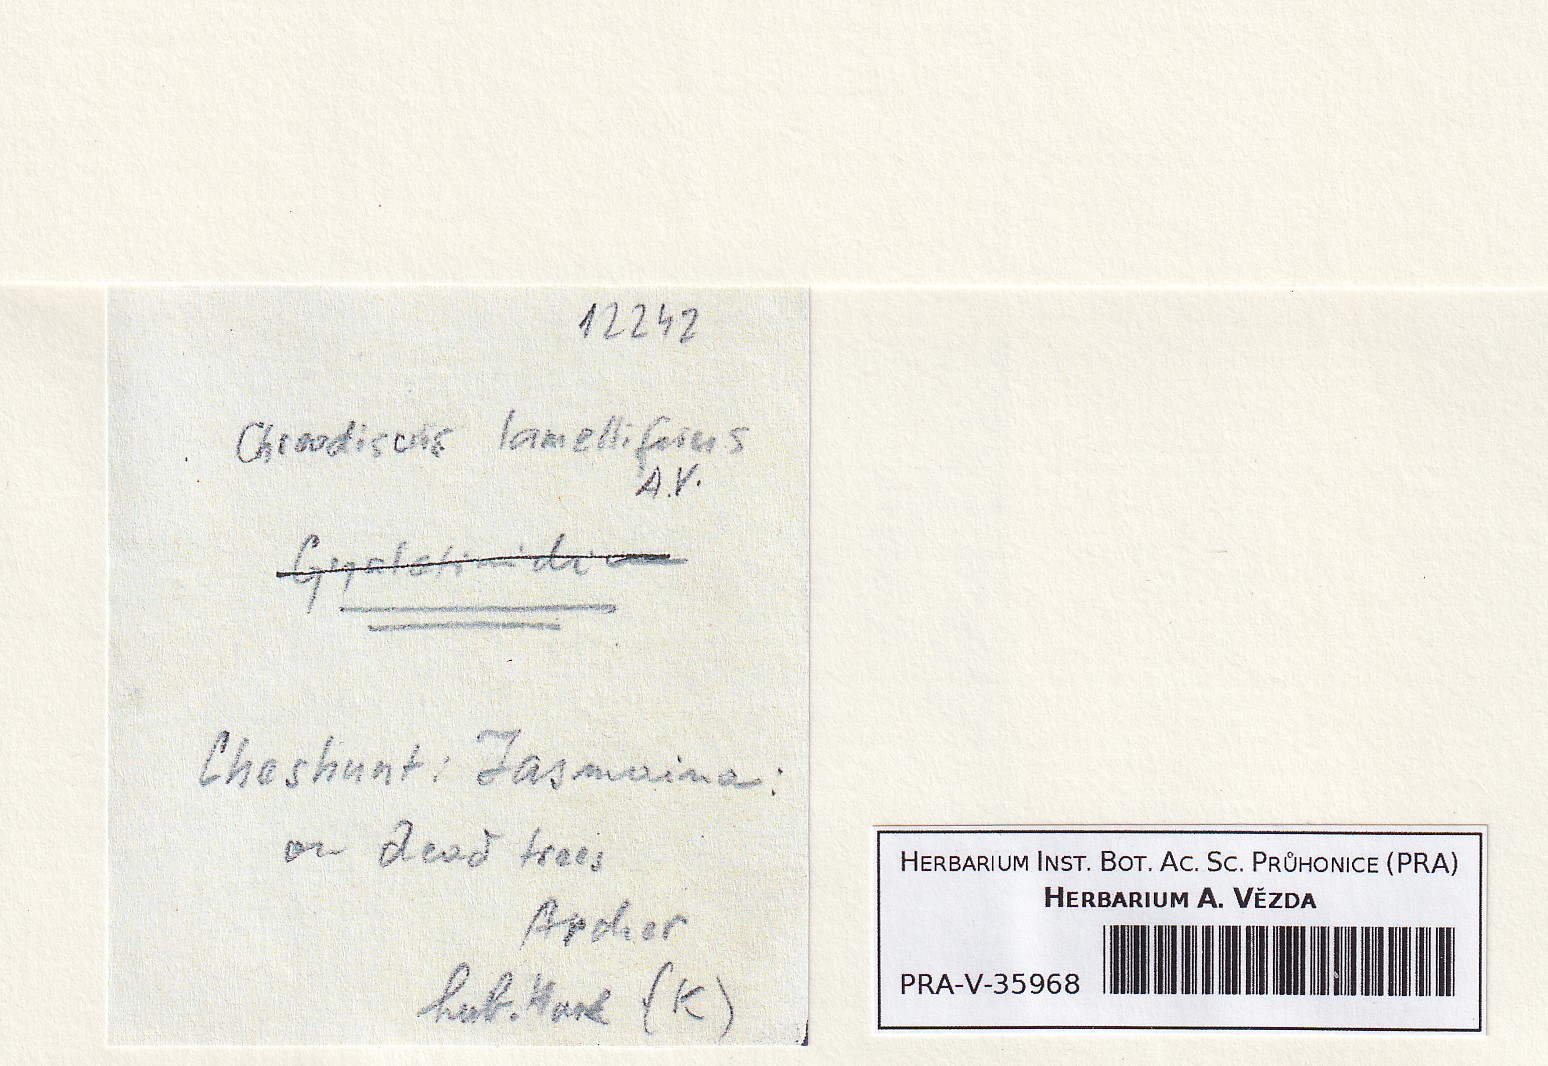 12242
Chroodiscus lamelliferus
A.V.
Cheshunt: Tasmaina:
on dead trees
Archer
herb. Hook (K)
HERBARIUM INST. BOT. AC. SC. PRŮHONICE (PRA)
HERBARIUM A. VĚZDA
PRA-V-35968